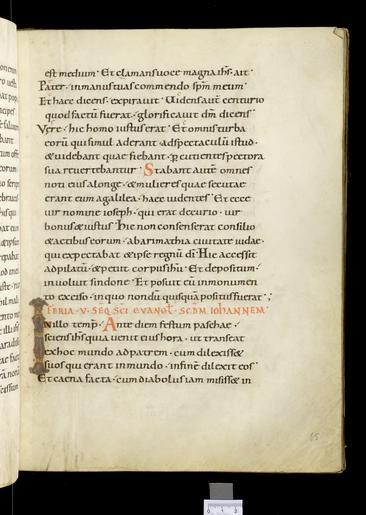 est medium · Et clamans uoce magna ihs̄ · ait ·
Pater · in manus tuas commendo spm̄ meum ·
Et haec dicens · expirauit · Uidens autē centurio
quod factū fuerat · glorificauit dm̄ dicens ·
Vere · hic homo iustus erat · Et omnis turba
eorū qui simul aderant ad spectaculū istud ·
& uidebant quae fiebant · percutientes pectora
sua reuertebantur · Stabant autē omnes
noti eius a longe · & mulieres quae secutae
erant eum a galilea · haec uidentes · Et ecce
uir nomine ioseph · qui erat decurio · uir
bonus & iustus · Hic non consenserat consilio
& actibus eorum · ab arimathia ciuitate iudae ·
qui expectabat & ipse regnū dī · Hic accessit
ad pilatū · & petiit corpus ihū · Et depositum ·
inuoluit sindone · Et posuit eū in monumen
to exciso · in quo nondū quisquā positus fuerat · ;
FERIA · V · SEQ̄ SC̄I EVANGL̄ · SCDM̄ IOHANNEM
In illo temp̄ · Ante diem festum paschae ·
sciens ihs̄ quia uenit eius hora · ut transeat
ex hoc mundo ad patrem · cum dilexiss&
suos qui erant in mundo · in finē dilexit eos ·
Et caena facta · cum diabolus iam misiss& in
65